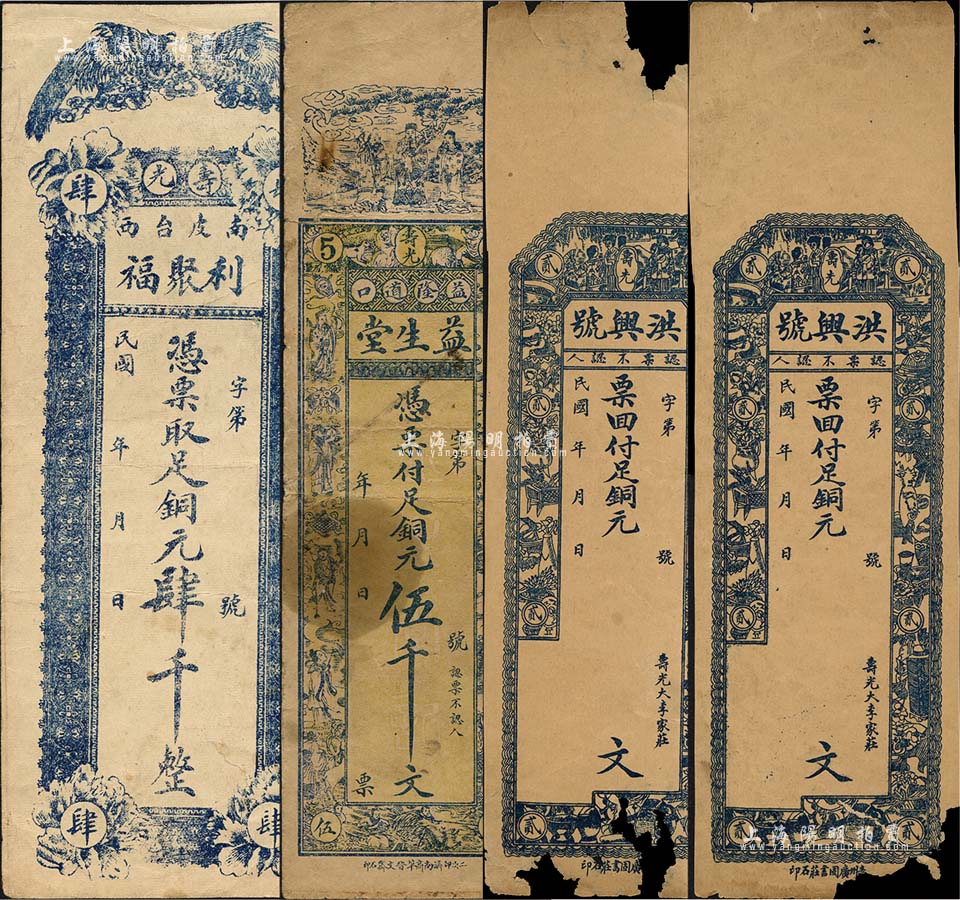 上海陽明拍賣
www.yangmingauction.com
肆
壽光
南皮台西
利聚福
字第
號
憑票取足銅元肆千整
民國
年
月
日
肆
肆
5
壽光
益隆道口
益生堂
字第
號
認票不認人
憑票付足銅元伍千文
年
月
日
票
伍
上海陽明拍賣
www.yangmingauction.com
貳
壽光
洪興號
認票不認人
字第
號
壽光大李家莊
票回付足銅元
文
民國
年
月
日
貳
貳
貳
廣圖書莊石印
貳
壽光
貳
洪興號
認票不認人
字第
號
壽光大李家莊
票回付足銅元
文
民國
年
月
日
貳
貳
貳
貳
貳
州廣圖書莊石印
上海陽明拍賣
www.yangmingauction.com